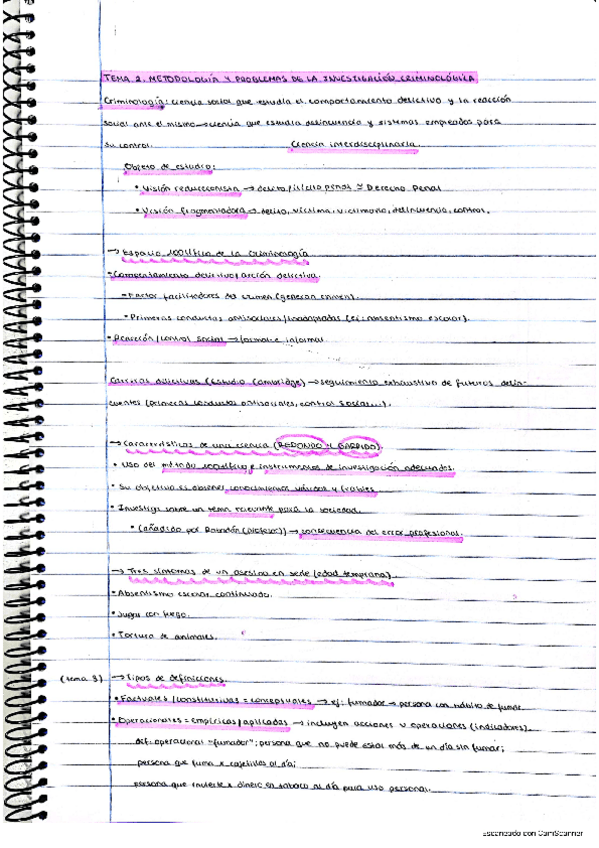 TEMA 2. METODOLOGÍA Y PROBLEMAS DE LA INVESTIGACIÓN CRIMINOLÓGICA
Criminología: ciencia social que estudia el comportamiento delictivo y la reacción
social ante el mismo → ciencia que estudia delincuencia y sistemas empleados para
su control. Ciencia interdisciplinaria.
Objeto de estudio:
• Visión reduccionista → delito/ilícito penal ≅ Derecho Penal
• Visión fragmentadora → delito, víctima, victimario, delincuencia, control.
→ Espacio científico de la criminología
• Comportamiento delictivo/acción delictiva.
- Factor facilitadores del crimen (generan crimen).
• Primeras conductas antisociales/inadaptadas (ej: absentismo escolar).
• Reacción/control social → formal e informal
Carreras delictivas (Estudio Cambridge) → seguimiento exhaustivo de futuros delin-
cuentes (primeras conductas antisociales, control social...).
→ Características de una ciencia (REDONDO Y GARRIDO).
• Uso del método científico e instrumentos de investigación adecuados.
• Su objetivo es obtener conocimientos válidos y fiables.
• Investiga sobre un tema relevante para la sociedad.
• (añadido por (profesor)) → consecuencia del error profesional.
→ Tres síntomas de un asesino en serie (edad temprana).
• Absentismo escolar continuado.
• Jugar con fuego.
• Tortura de animales.
(tema 3) → Tipos de definiciones.
• Factuales/constitutivas = conceptuales → ej: fumador → persona con hábito de fumar.
• Operacionales = empíricas/aplicadas → incluyen acciones u operaciones (indicadores).
def: operacional "fumador": persona que no puede estar más de un día sin fumar;
persona que fuma x cajetillas al día;
persona que invierte x dinero en tabaco al día para uso personal.
Escaneado con CamScanner